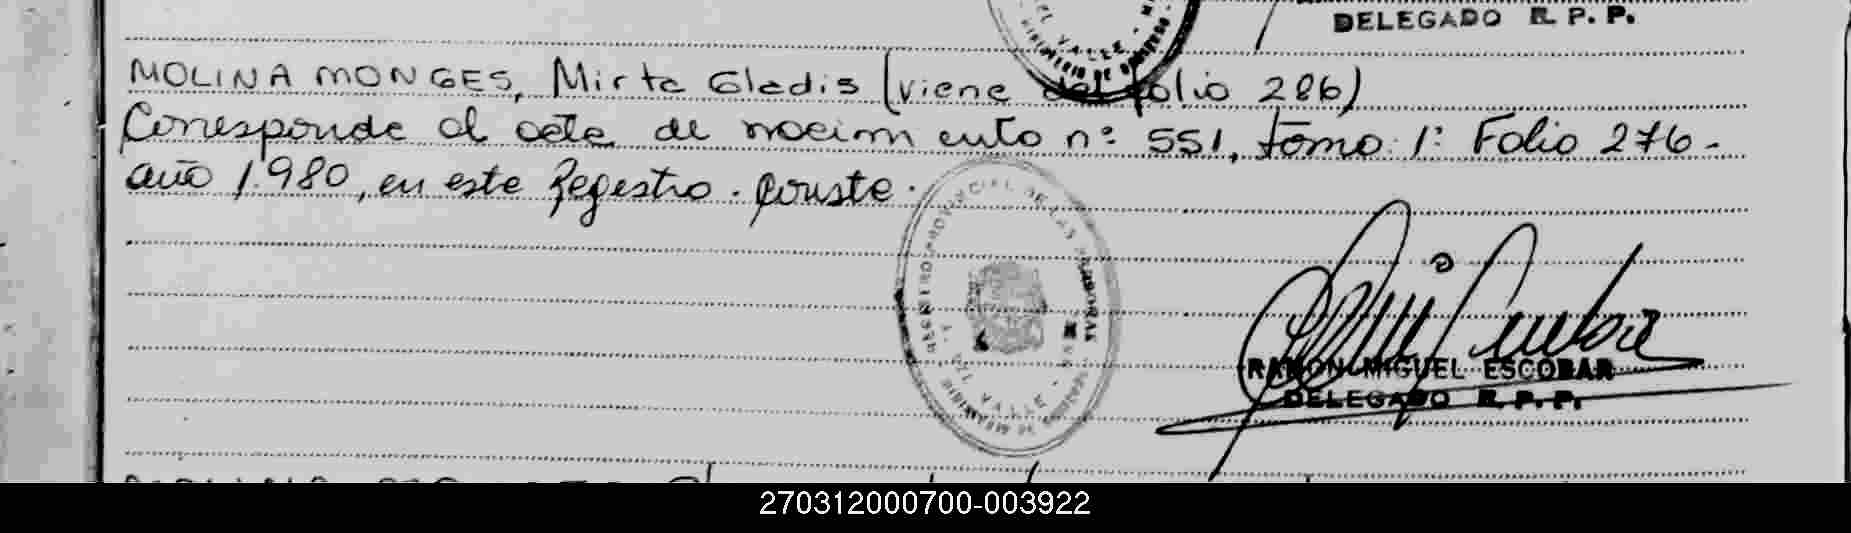 DELEGADO R. P. P.
MOLINA MONGES, Mirta Gladis (viene del folio 286)
Corresponde al acta de nacimiento nº 551, tomo: 1º Folio 276-
año 1.980, en este Registro. Conste.
REGISTRO PROVINCIAL DE LAS PERSONAS
EL VALLE
RAMON MIGUEL ESCOBAR
DELEGADO R. P. P.
270312000700-003922